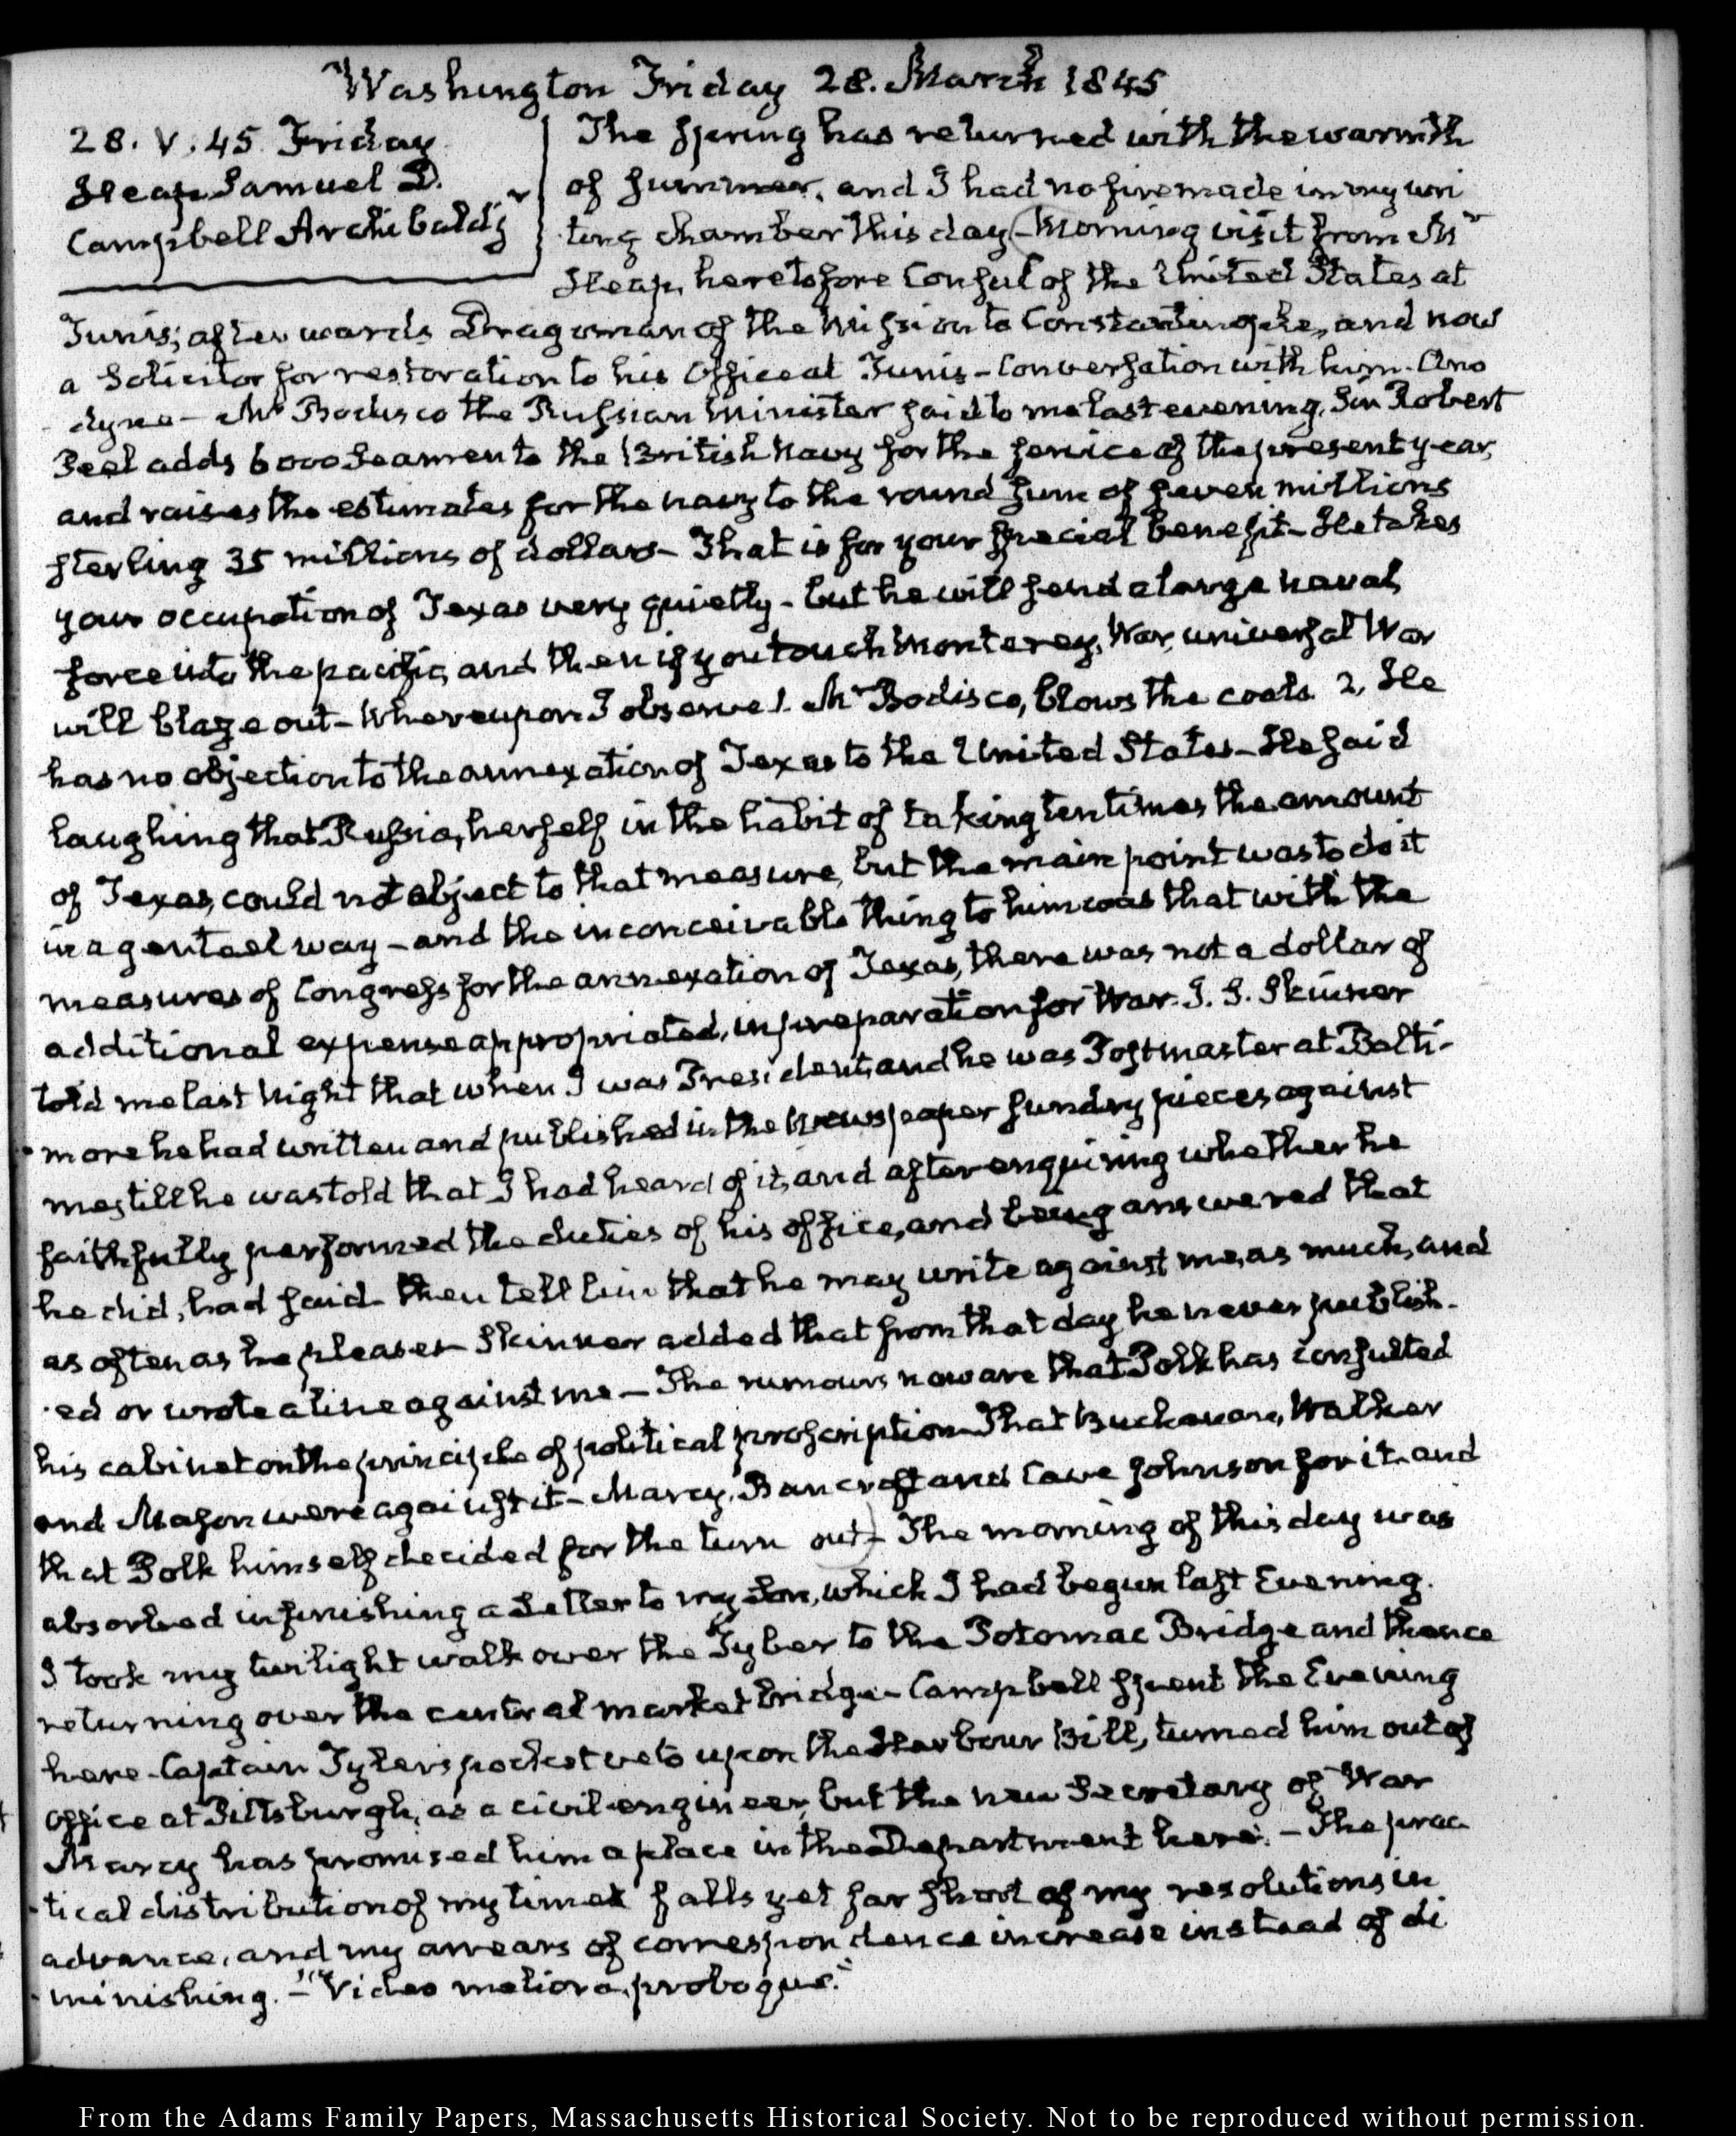 Washington Friday 28. March 1845
28. V. 45. Friday
Heap Samuel D.
Campbell Archibald
The Spring has returned with the warmth
of summer, and I had no fire made in my wri
ting chamber this day. Morning visit from Mr
Heap, heretofore Consul of the United States at
Tunis; afterwards Dragoman of the Mission to Constantinople, and now
a Solicitor for restoration to his Office at Tunis - Conversation with him. Ano
dyne - Mr Bodisco the Russian Minister said to me last evening, Sir Robert
Peel adds 6000 Seamen to the British Navy for the service of the present year,
and raises the estimates for the navy to the round sum of seven millions
sterling 35 millions of dollars - That is for your special benefit - He takes
your occupation of Texas very quietly - but he will send a large naval
force into the pacific, and then if you touch Monterey, War, universal War
will blaze out - Whereupon I observe 1. Mr Bodisco, blows the coals. 2, He
has no objection to the annexation of Texas to the United States - He said
laughing that Russia, herself in the habit of taking ten times the amount
of Texas, could not object to that measure, but the main point was to do it
in a genteel way - and the inconceivable thing to him was that with the
measures of Congress for the annexation of Texas, there was not a dollar of
additional expense appropriated, in preparation for War. J. S. Skinner
told me last Night that when I was President, and he was Postmaster at Balti-
more he had written and published in the Newspaper sundry pieces against
me, till he was told that I had heard of it, and after enquiring whether he
faithfully performed the duties of his office, and being answered that
he did, had said - then tell him that he may write against me, as much, and
as often as he pleases - Skinner added that from that day he never publish-
ed or wrote a line against me - The rumours now are that Polk has consulted
his cabinet on the principle of political proscription - That Buchanan, Walker
and Mason were against it - Marcy, Bancroft and Cave Johnson for it, and
that Polk himself decided for the turn out - The morning of this day was
absorbed in finishing a Letter to my Son, which I had begun last Evening.
I took my twilight walk over the Tyber to the Potomac Bridge and thence
returning over the central market bridge - Campbell spent the Evening
here - Captain Tyler's pocket veto upon the Harbour Bill, turned him out of
Office at Pittsburgh, as a civil engineer, but the new Secretary of War
Marcy has promised him a place in the Department here. - The prac
tical distribution of my time falls yet far short of my resolutions in
advance, and my arrears of correspondence increase instead of di
minishing. - "Video meliora, proboque."
From the Adams Family Papers, Massachusetts Historical Society. Not to be reproduced without permission.